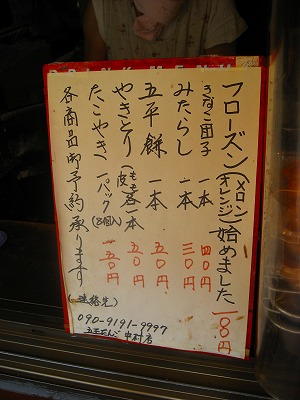 DRINK MENU
フローズン(メロン オレンジ)始めました 180円
きなこ団子 一本 四〇円
みたらし 一本 三〇円
五平餅 一本 五〇円
やきとり(もも 皮)各一本 五〇円
たこやき 一パック(8個入) 一五〇円
各商品御予約承ります
(連絡先)
090-9191-9997
五平だんご 中村店